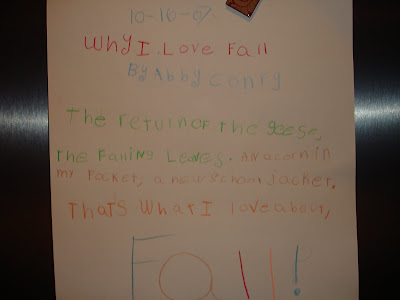 10-16-07
Why I Love Fall
By Abby Conry
The return of the geese,
The Falling Leaves. An acorn in
my Packet, a new school jacket.
Thats What I love about,
Fall!